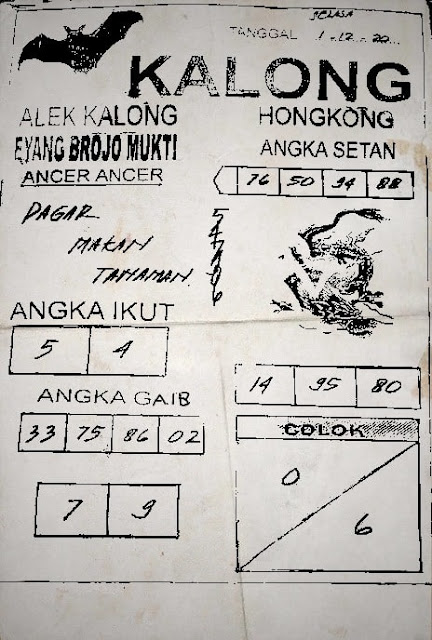 SELASA
TANGGAL 1-12-20...
KALONG
ALEK KALONG
EYANG BROJO MUKTI
ANCER ANCER
HONGKONG
ANGKA SETAN
76 50 94 88
PAGAR
MAKAN
TANAMAN
5
4
7
9
0
6
ANGKA IKUT
5 4
14 95 80
ANGKA GAIB
33 75 86 02
7 9
COLOK
0
6